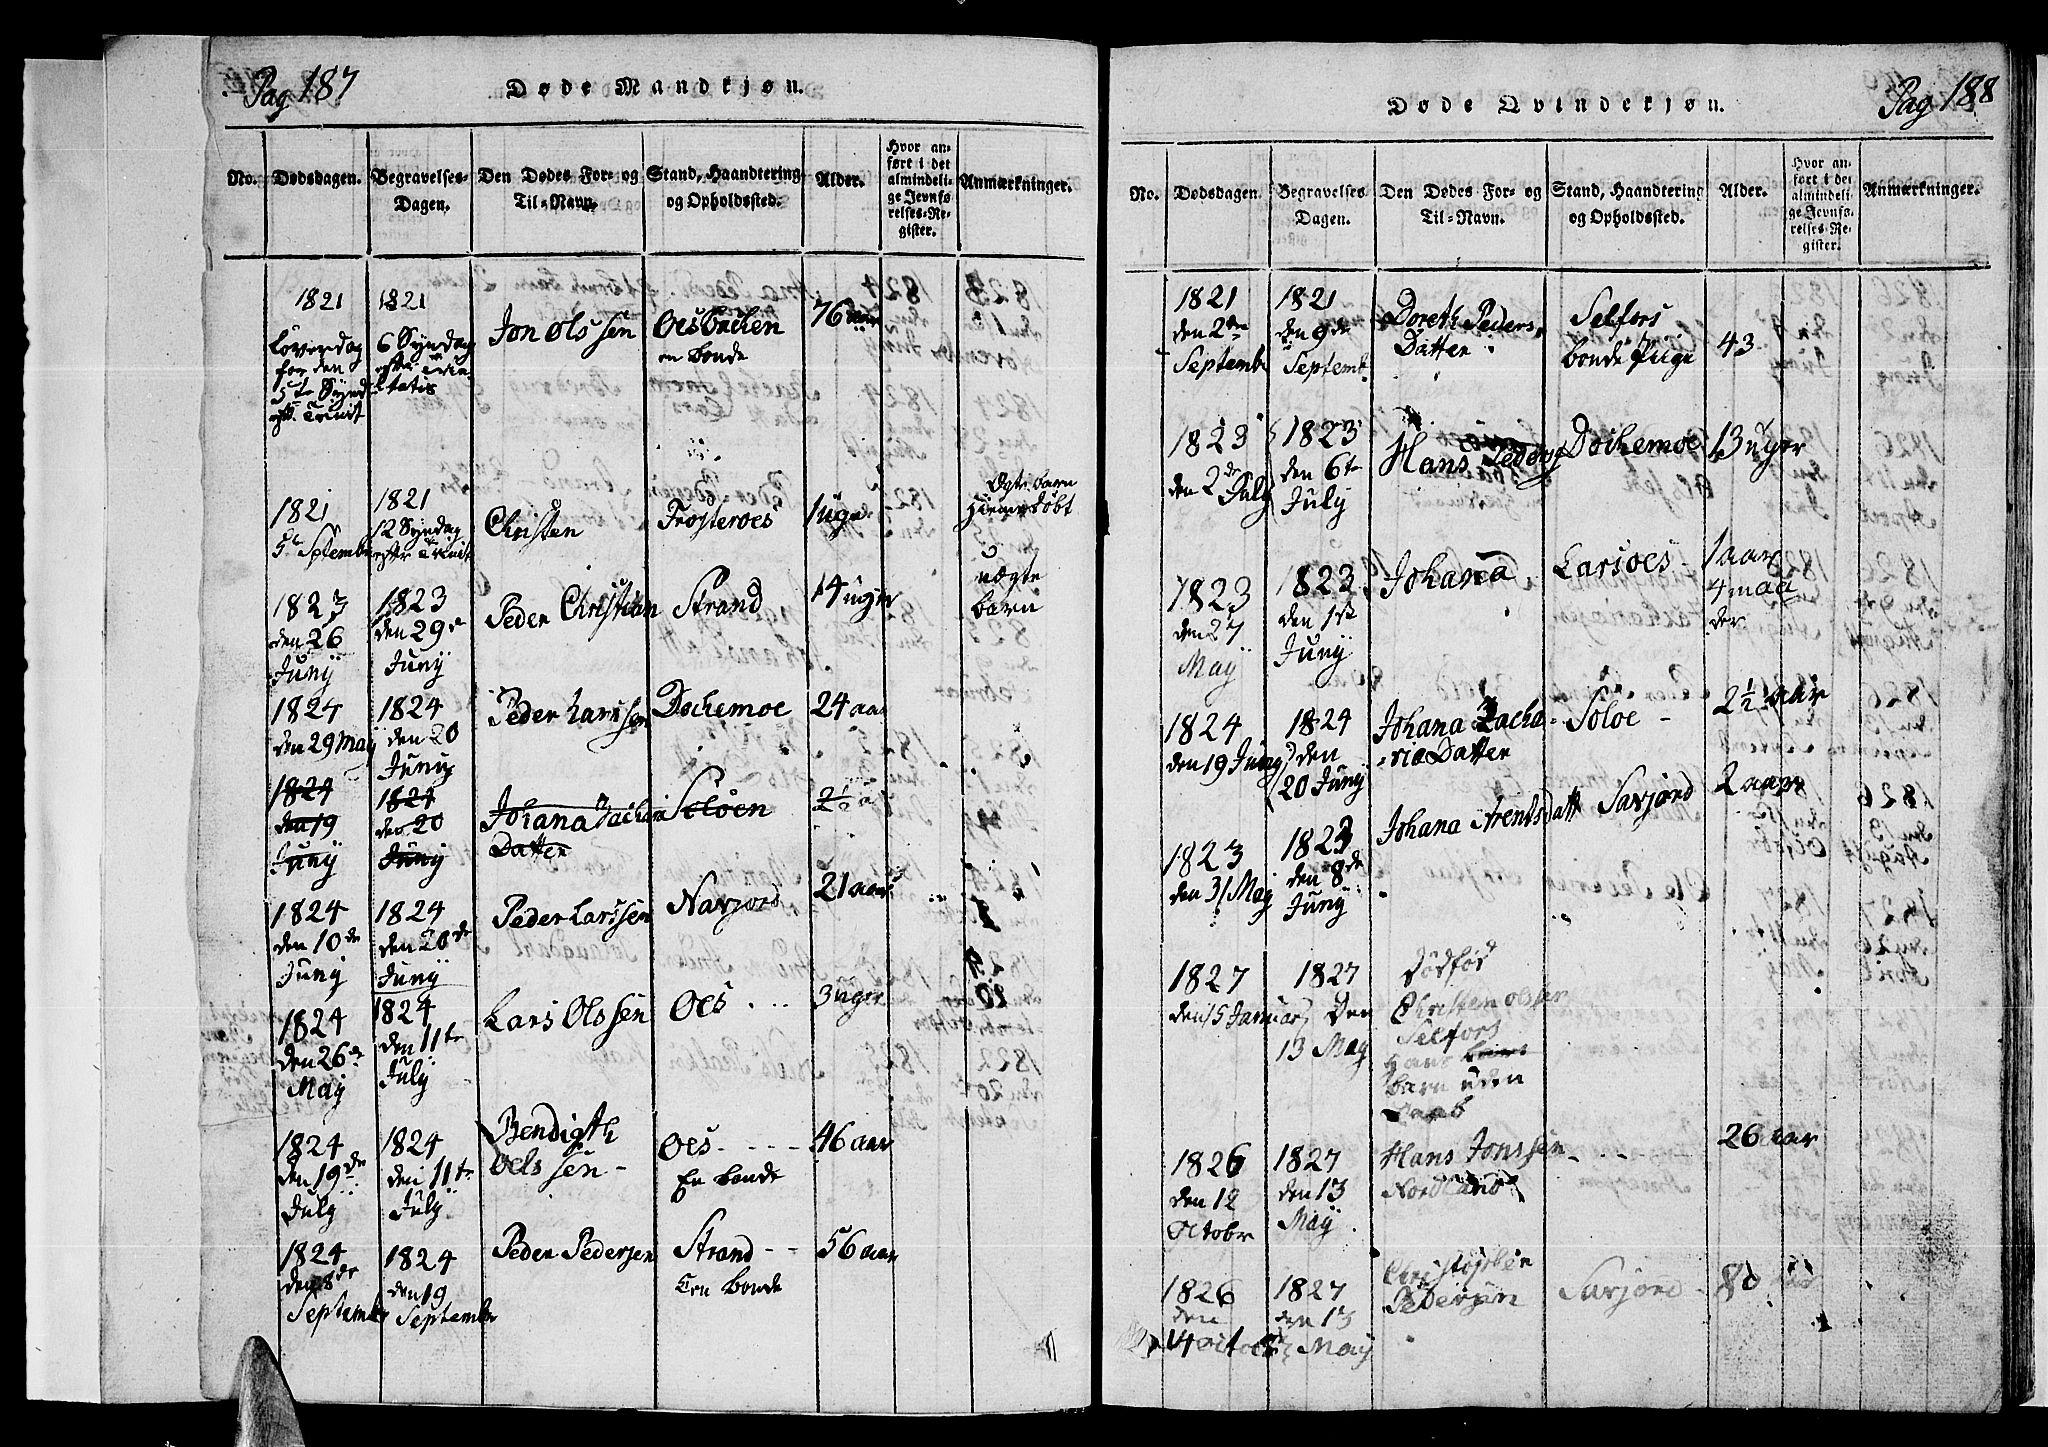 Pag 187
Døde Mandkjøn.
No.
Dødsdagen.
Begravelses-
Dagen.
Den Dødes For- og
Til-Navn.
Stand, Haandtering
og Opholdssted.
Alder.
Hvor an-
ført i det
almindeli-
ge Jevnfø-
relses-Re-
gister.
Anmærkninger.
1821
Løverdag
for den
5te Synd
eft. Trinit
1821
6 Syndag
efter Trini-
tatis
Jon Olssen
Oesbachen
en bonde
76 aar
1821
5te September
1821
12 Syndag
efter Trinit
Christen
Frosteroes
1 uge
Ægte barn
Hjemedøbt
1823
den 26
Junÿ
1823
den 29de
Junÿ
Peder Christian
Strand
14 uger
uægte
barn
1824
den 29 Maÿ
1824
den 20
Junÿ
Peder Larssen
Dochemoe
24 aar
1824
den 19
Junÿ
1824
den 20
Junÿ
Johana Zacharia
Datter
Soløen
2½ a
1824
den 10de
Junÿ
1824
den 20de
Junÿ
Peder Larssen
Navjord
21 aar
1824
den 26de
Maÿ
1824
den 11te
Julÿ
Lars Olssen
Oes
3 uger
1824
den 19de
Julÿ
1824
den 11te
Julÿ
Bendigth
Oelssen
Oes
En bonde
46 aar
1824
den 8de
September
1824
den 19
September
Peder Pedersen
Strand
En bonde
56 aar
Pag 188
Døde Qvindekjøn.
No.
Dødsdagen.
Begravelses
Dagen.
Den Dødes For- og
Til-Navn.
Stand, Haandtering
og Opholdssted.
Alder.
Hvor an-
ført i det
almindeli-
ge Jevnfø-
relses-Re-
gister.
Anmærkninger.
1821
den 2den
Septembr
1821
den 9de
Septemb.
Doreth Peders
Datter
Selfors
bonde Piige
43
1823
den 2de Julÿ
1823
den 6te
Julÿ
Hans
Dochemoe
13 uger
1823
den 27
Maÿ
1823
den 1ste
Junÿ
Johana
Larsoes
1 aar
4 maa
der
1824
den 19 Junÿ
1824
den
20 Junÿ
Johana Zacha-
ria Datter
Soløe
2½ aar
1823
den 31 Maÿ
1823
den 8de
Junÿ
Johana Arentsdatt
Savjord
2 aar
1827
den 15 Januar
1827
Den
13 May
Dødfød
Christen Olssen
Selfors
Hans
barn uden
Daab
1826
den 12
Octobr
1827
den 13
Maÿ
Hans Jonssen
Nordland
26 aar
1826
den
1827
den 13
Maÿ
Christopher
Pedersen
Savjord